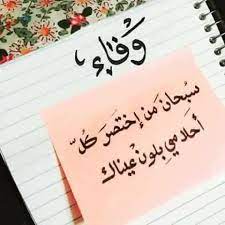 وفاء
سبحان من إختصر كلّ
أحلامي بلون عيناك